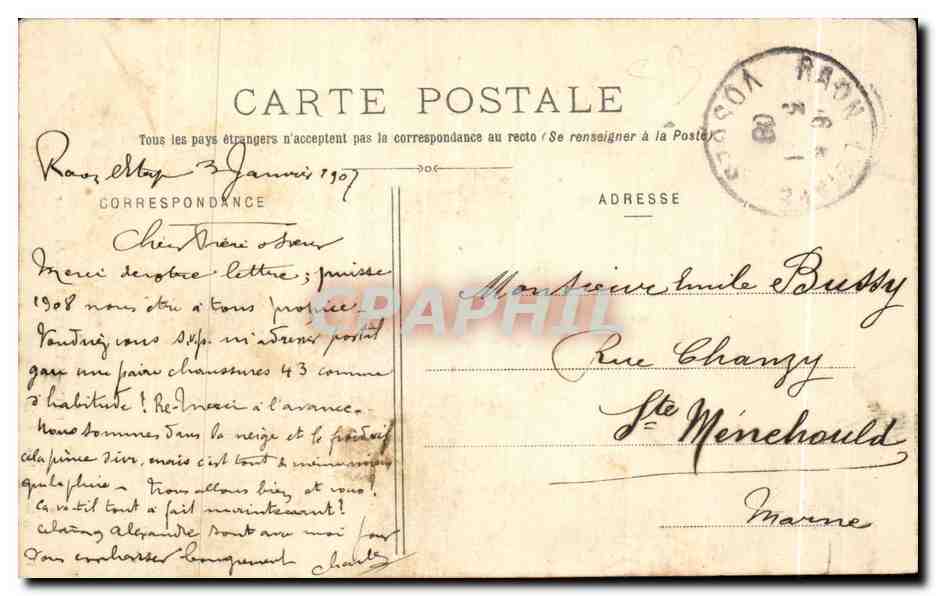 CARTE POSTALE
Tous les pays étrangers n'acceptent pas la correspondance au recto (Se renseigner à la Poste)
3 Janvier 1907
CORRESPONDANCE
ADRESSE
Merci de votre lettre; puisse
1908 nous être à tous propice.
Voudriez vous s.v.p. m'adresser postal
gare une paire chaussures 43 comme
d'habitude! Re-Merci à l'avance.
Nous sommes dans la neige et le froid
cela pince mais c'est tout de même
que la pluie. Nous allons bien et vous?
Ca va-t-il tout à fait maintenant?
Alexandre sont avec moi pour
vous embrasser longuement
Monsieur Emile Bussy
Rue Chanzy
Ste Ménehould
Marne
RAON
VOSGES
08
CPAPHIL